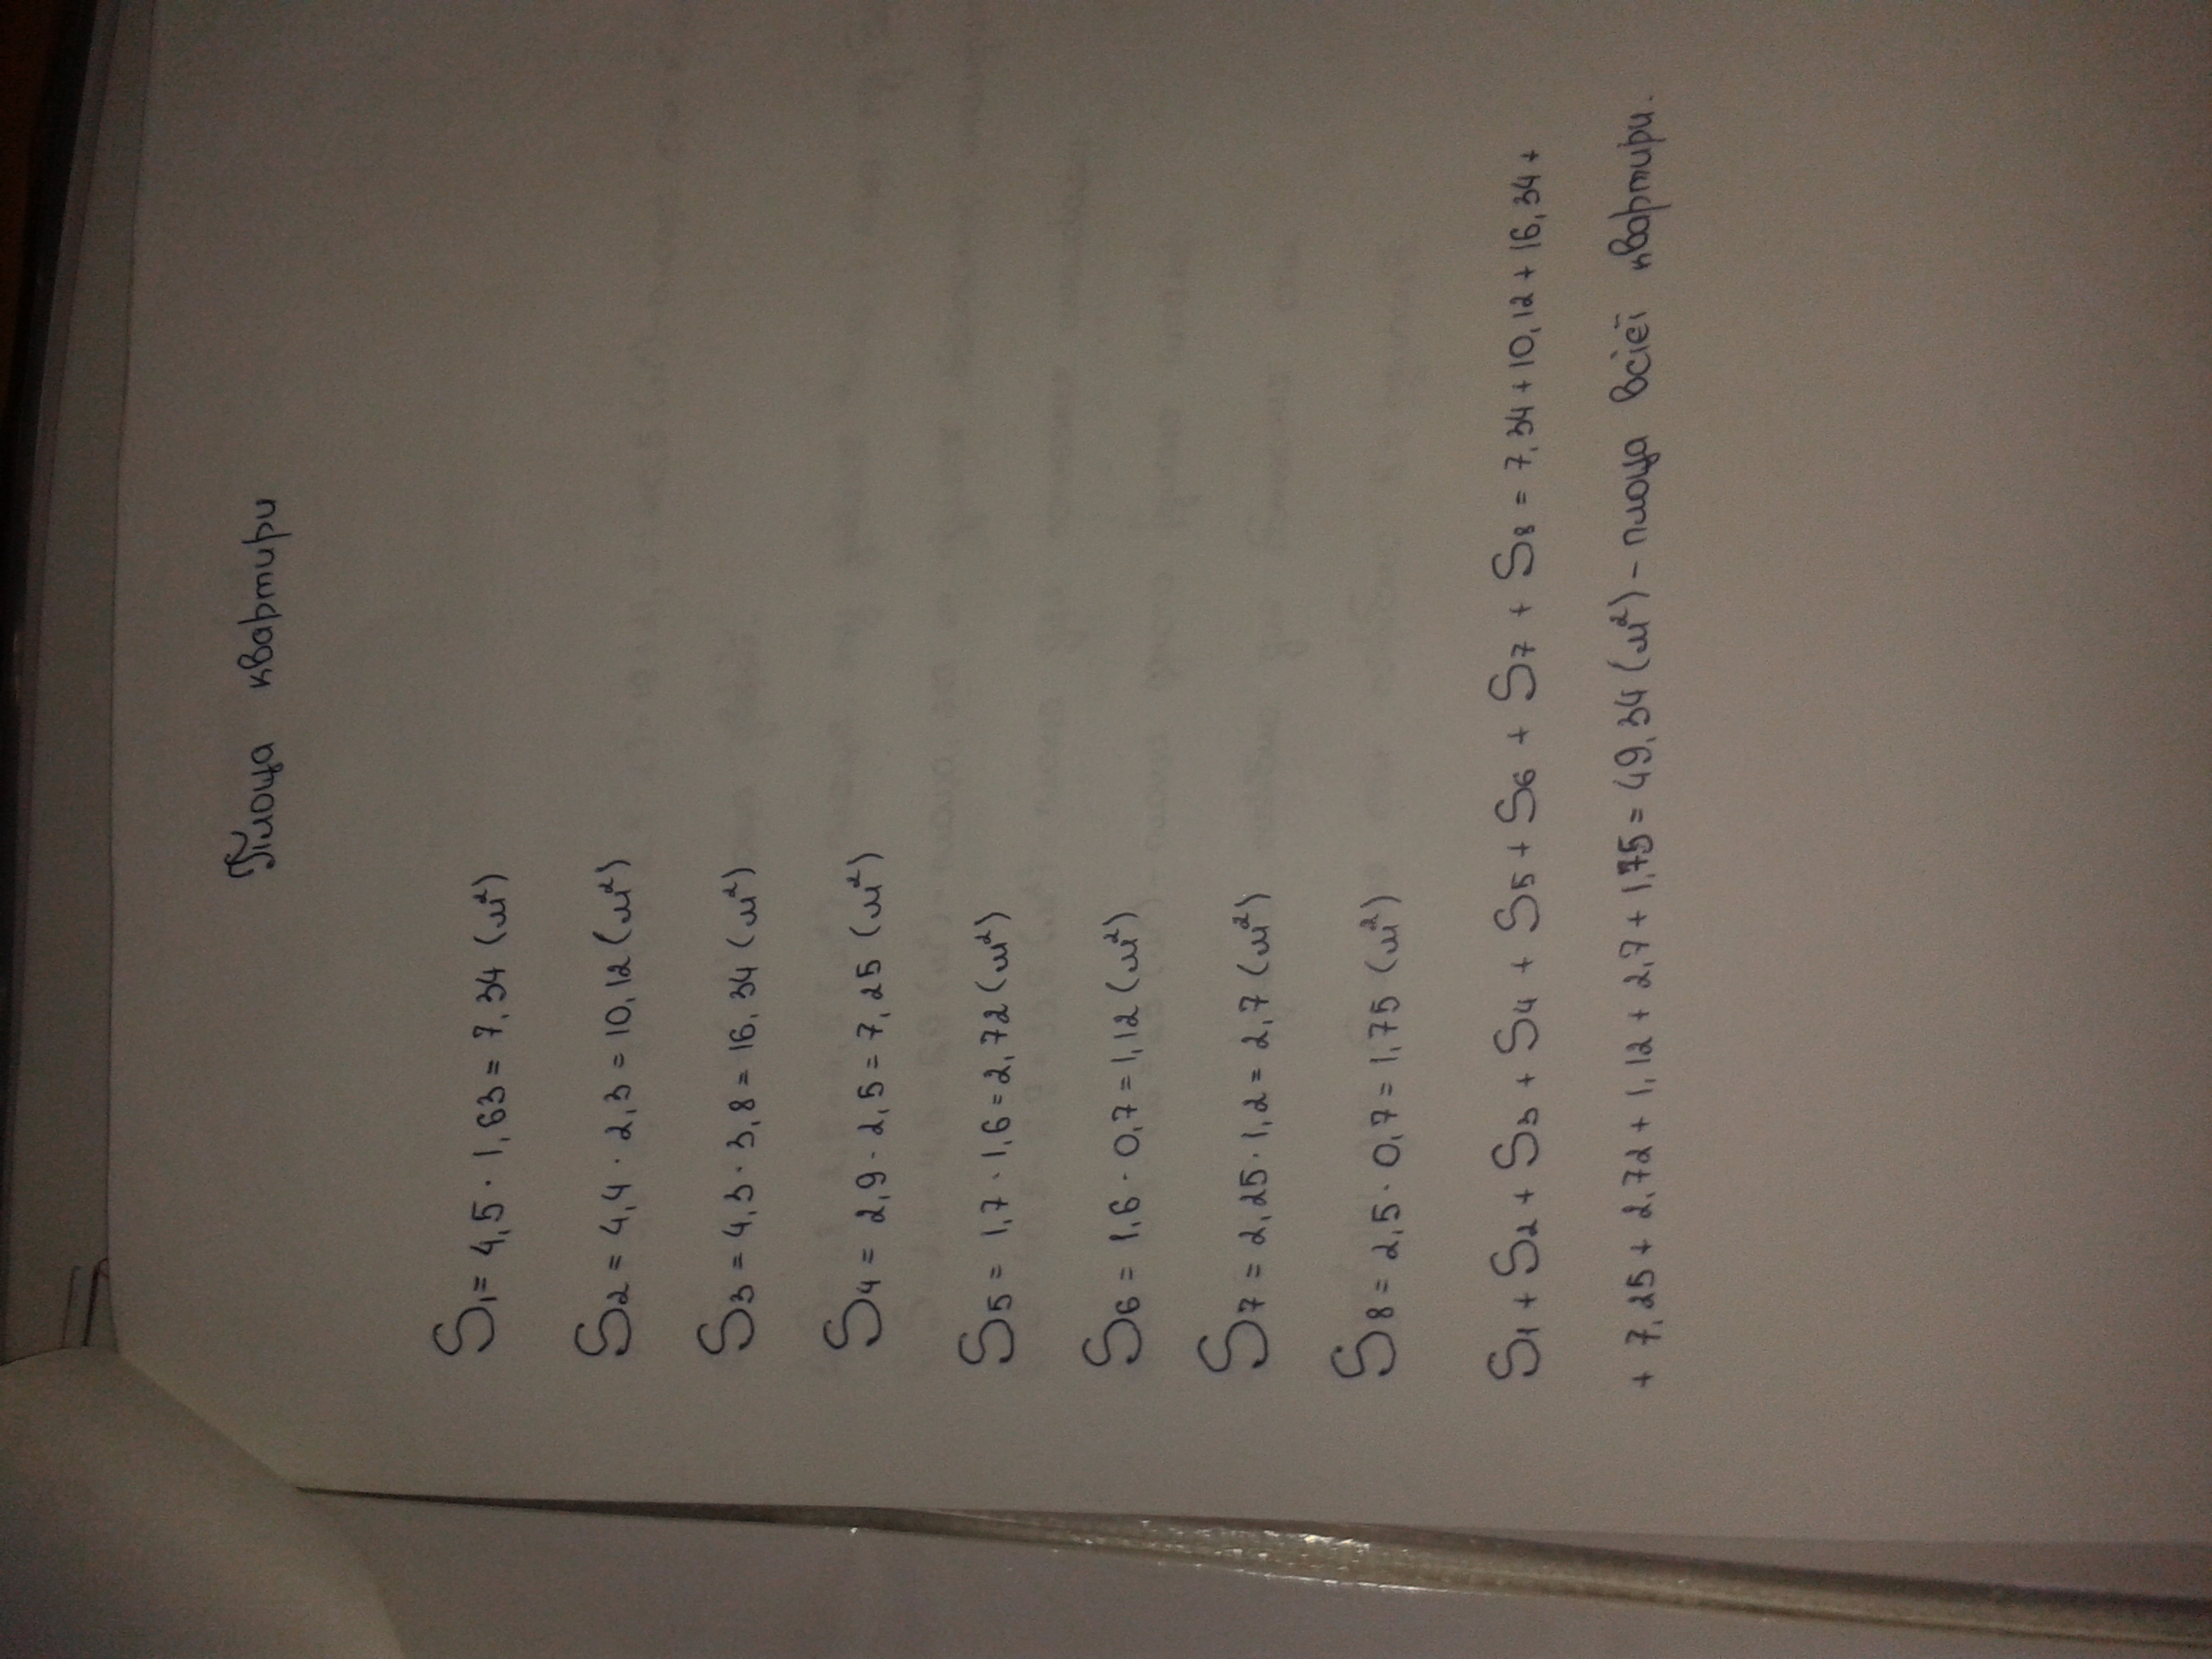 Площа квартири
S1 = 4,5 · 1,63 = 7,34 (м²)
S2 = 4,4 · 2,3 = 10,12 (м²)
S3 = 4,3 · 3,8 = 16,34 (м²)
S4 = 2,9 · 2,5 = 7,25 (м²)
S5 = 1,7 · 1,6 = 2,72 (м²)
S6 = 1,6 · 0,7 = 1,12 (м²)
S7 = 2,25 · 1,2 = 2,7 (м²)
S8 = 2,5 · 0,7 = 1,75 (м²)
S1 + S2 + S3 + S4 + S5 + S6 + S7 + S8 = 7,34 + 10,12 + 16,34 +
+ 7,25 + 2,72 + 1,12 + 2,7 + 1,75 = 49,34 (м²) - площа всієї квартири.